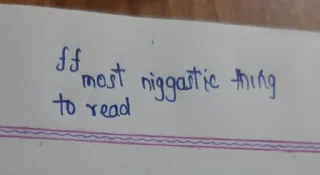 ff
most niggastic thing
to read